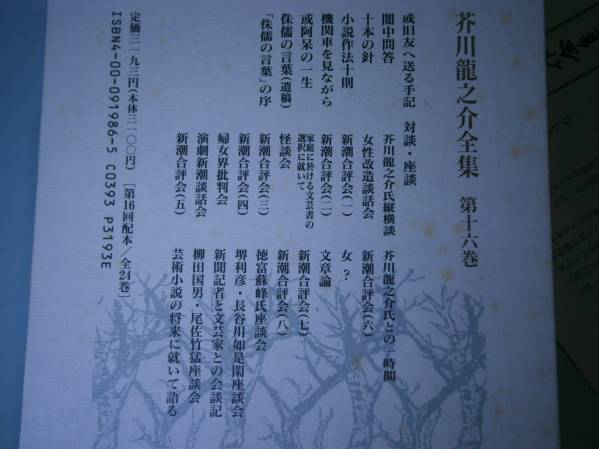 芥川龍之介全集 第十六巻
或旧友へ送る手記
闇中問答
十本の針
小説作法十則
機関車を見ながら
或阿呆の一生
侏儒の言葉(遺稿)
「侏儒の言葉」の序
対談・座談
芥川龍之介氏縦横談
女性改造談話会
新潮合評会(一)
新潮合評会(二)
家庭に於ける文芸書の
選択に就いて
怪談会
新潮合評会(三)
新潮合評会(四)
婦女界批判会
演劇新潮談話会
新潮合評会(五)
芥川龍之介氏との一時間
新潮合評会(六)
女?
文章論
新潮合評会(七)
新潮合評会(八)
徳富蘇峰氏座談会
堺利彦・長谷川如是閑座談会
新聞記者と文芸家との会談記
柳田国男・尾佐竹猛座談会
芸術小説の将来に就いて語る
定価三一九三円(本体三一〇〇円)[第16回配本/全24巻]
ISBN4-00-091986-5 C0393 P3193E